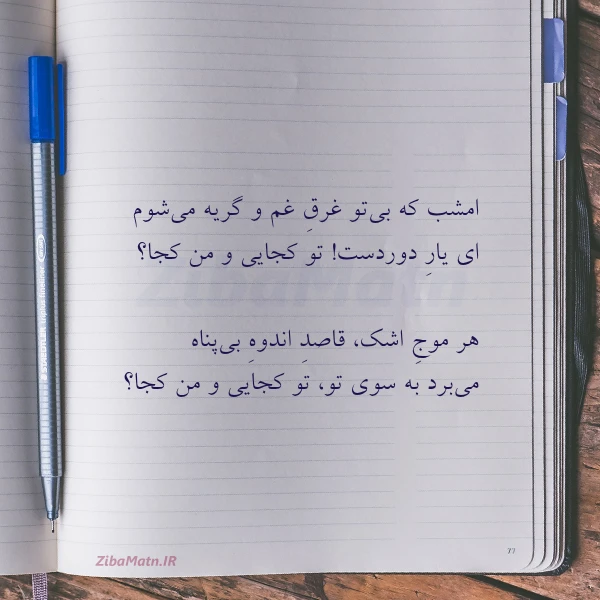 امشب که بی‌تو غرقِ غم و گریه می‌شوم
ای یارِ دوردست! تو کجایی و من کجا؟
هر موجِ اشک، قاصدِ اندوهِ بی‌پناه
می‌برد به سوی تو، تو کجایی و من کجا؟
ZibaMatn.IR